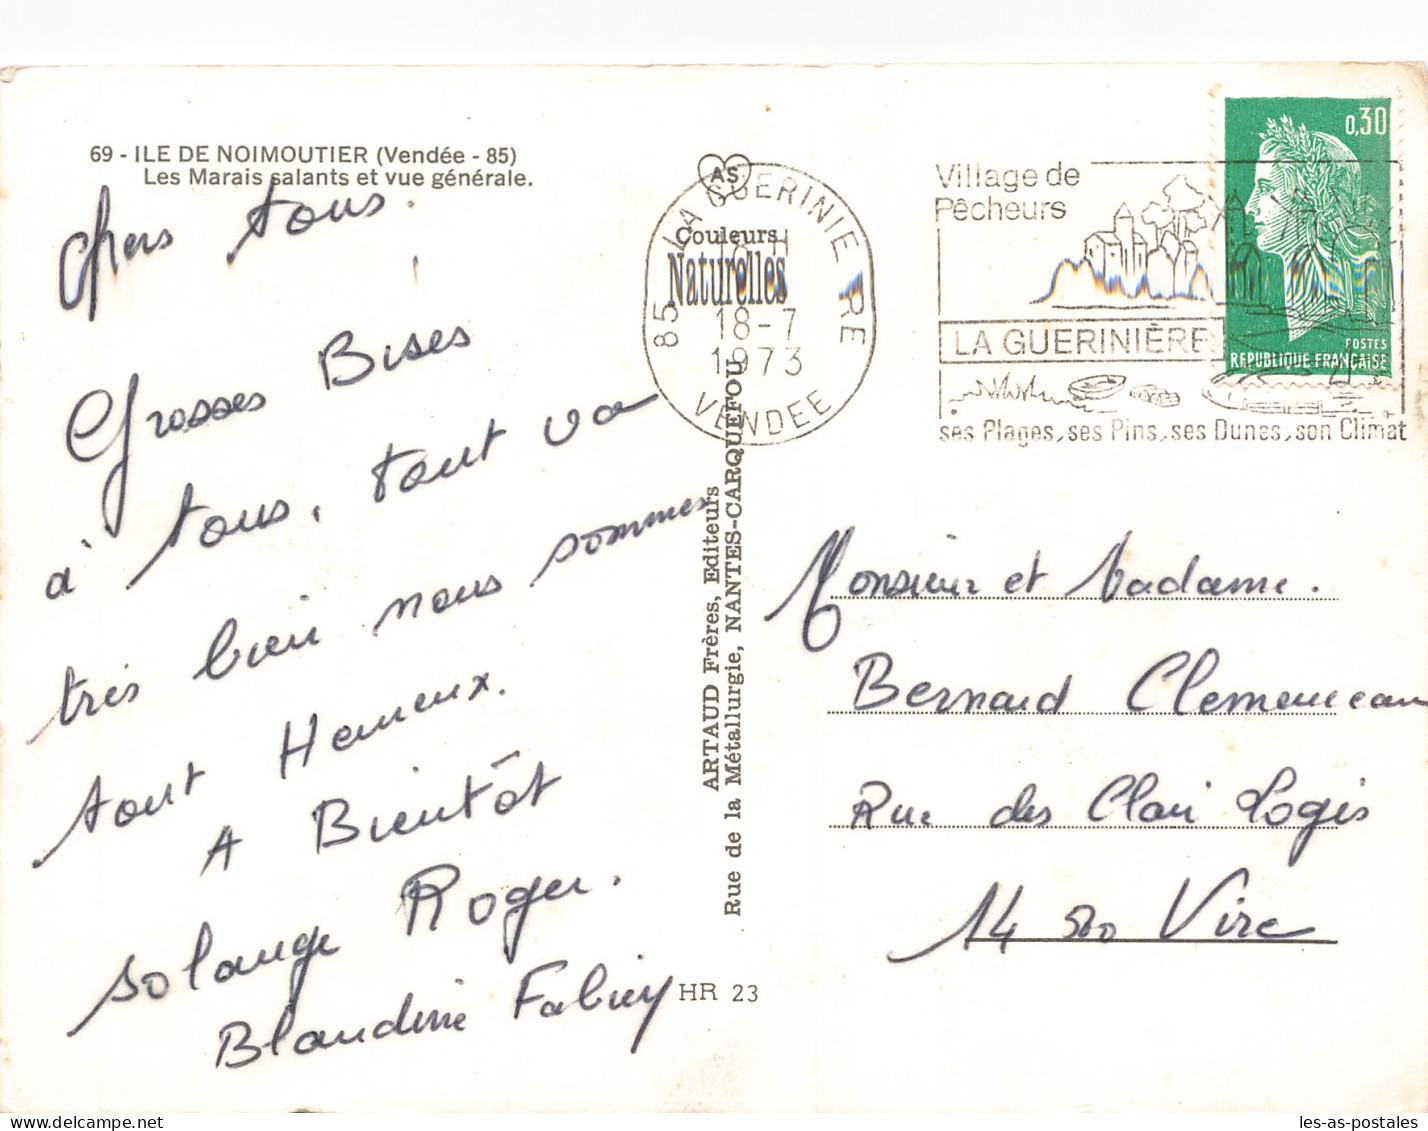 69 - ILE DE NOIMOUTIER (Vendée - 85)
Les Marais salants et vue générale.
chers tous.
Grosses Bises
à tous, tout va
très bien nous sommes
tout Heureux.
A Bientôt
solange Roger.
Blandine Fabien
AS
Couleurs
Naturelles
85 LA GUERINIERE
18-7
1973
VENDEE
ARTAUD Frères, Editeurs
Rue de la Métallurgie, NANTES-CARQUEFOU
HR 23
Village de
Pêcheurs
LA GUERINIÈRE
ses Plages, ses Pins, ses Dunes, son Climat
0,30
POSTES
REPUBLIQUE FRANÇAISE
Monsieur et Madame.
Bernard Clemenceau
Rue des Clair Logis
14 500 Vire
les-as-postales